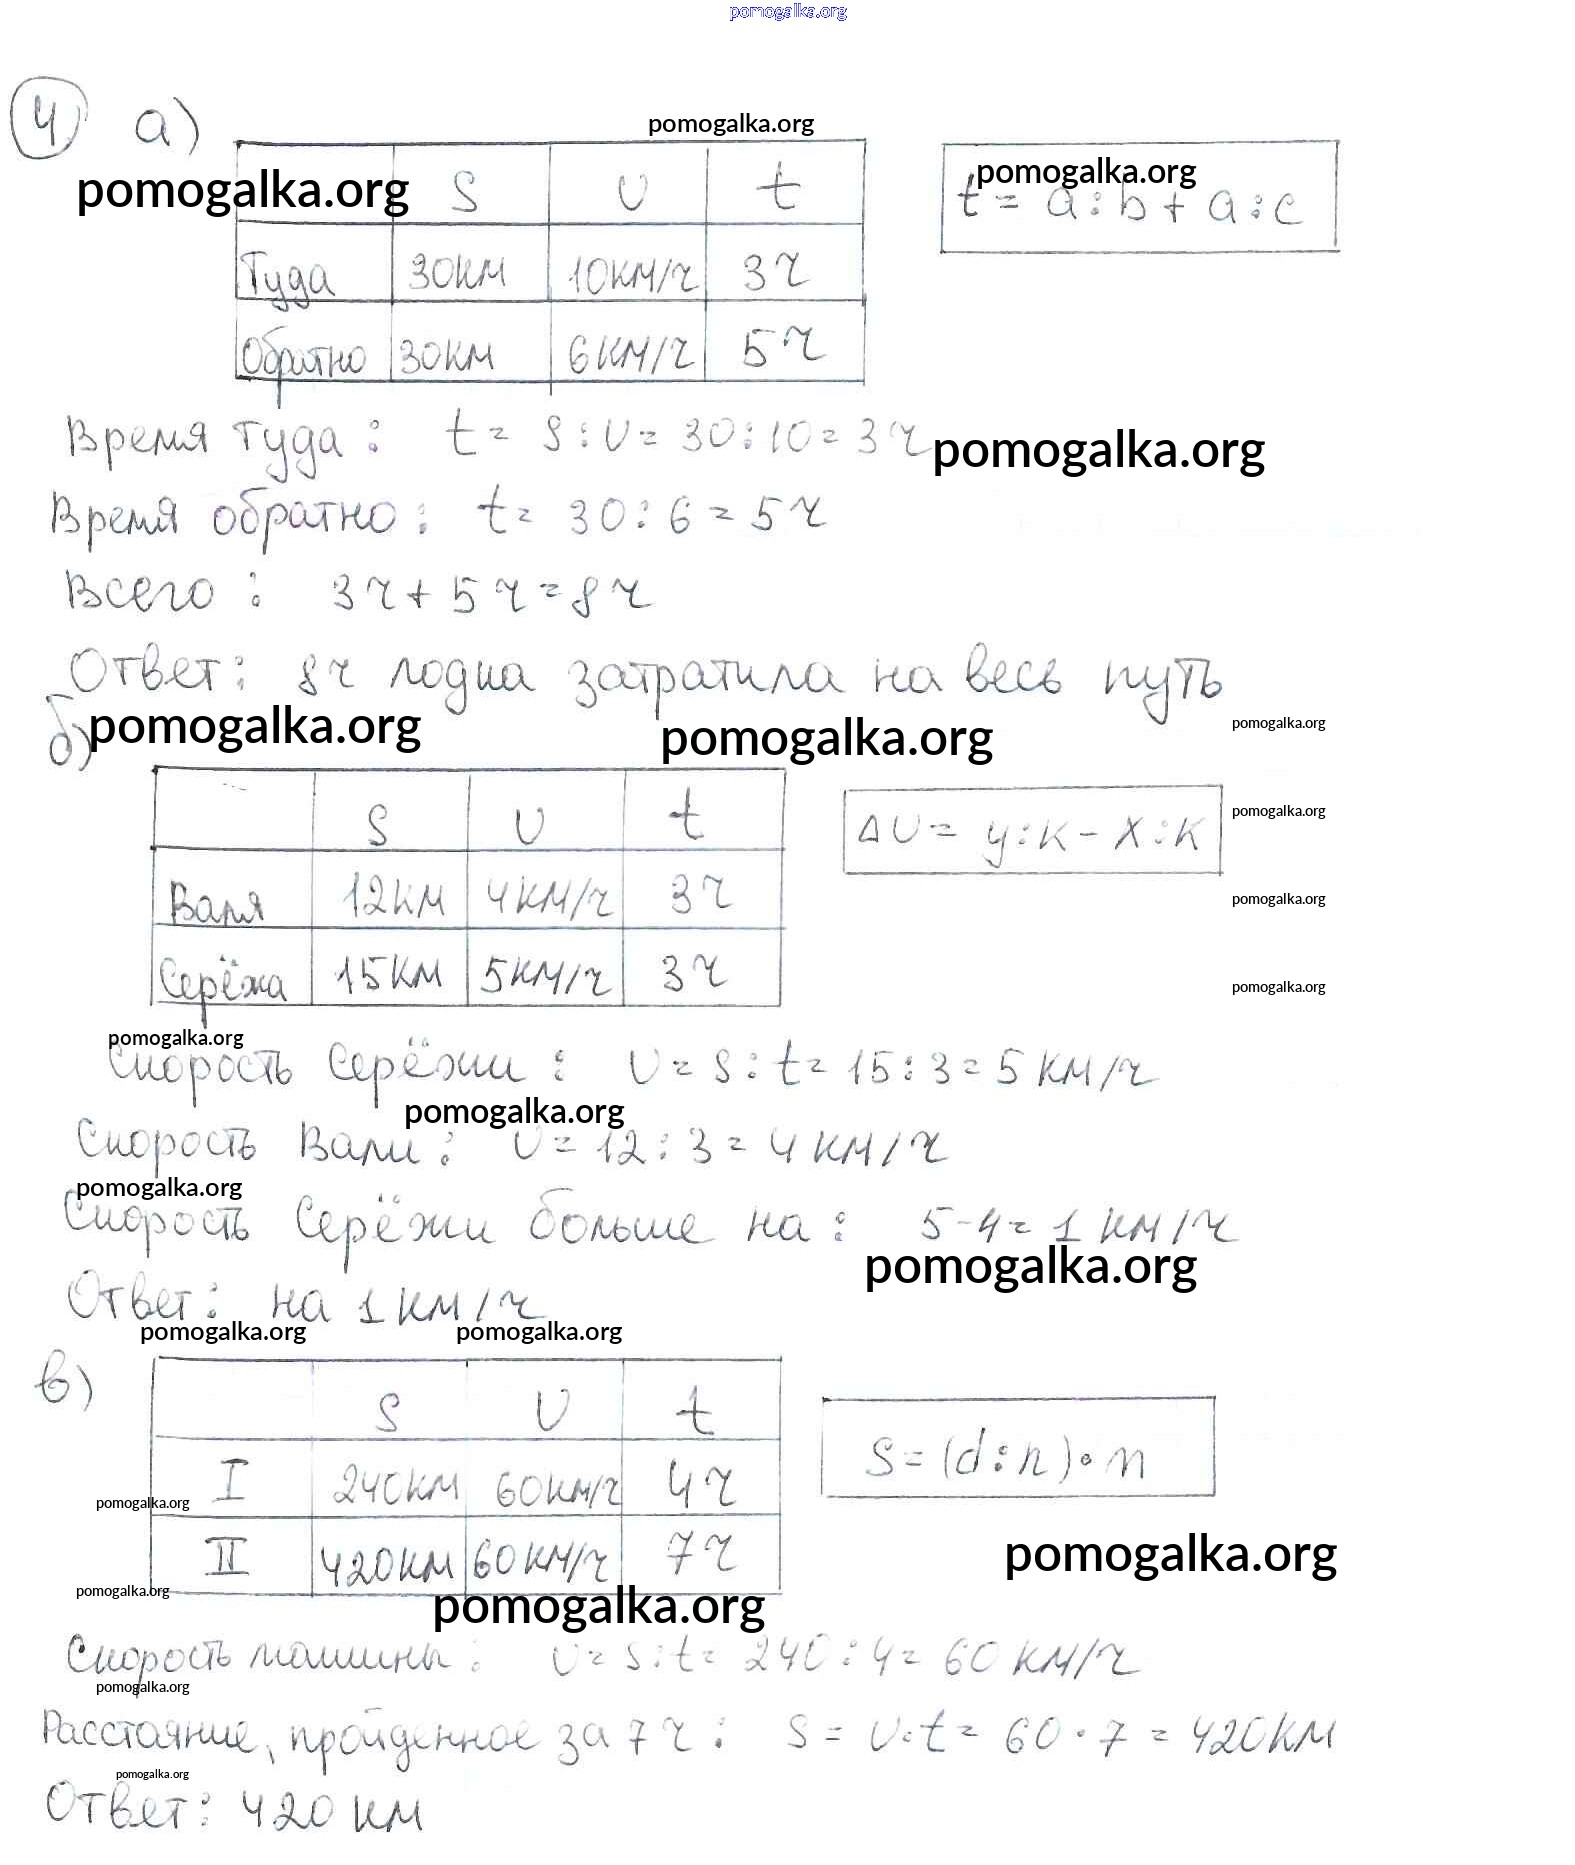 pomogalka.org
4 а)
pomogalka.org
pomogalka.org S υ t
pomogalka.org
t = a : b + a : c
Туда 30км 10км/ч 3ч
Обратно 30км 6км/ч 5ч
Время туда : t = s : υ = 30 : 10 = 3ч
pomogalka.org
Время обратно : t = 30 : 6 = 5ч
Всего : 3ч + 5ч = 8ч
Ответ : 8ч лодка затратила на весь путь
б) pomogalka.org pomogalka.org pomogalka.org
S υ t
Δυ = y : к - x : к
pomogalka.org
Валя 12км 4км/ч 3ч
pomogalka.org
Серёжа 15км 5км/ч 3ч
pomogalka.org
pomogalka.org
Скорость Серёжи : υ = s : t = 15 : 3 = 5км/ч
pomogalka.org
Скорость Вали : υ = 12 : 3 = 4км/ч
pomogalka.org
Скорость Серёжи больше на : 5 - 4 = 1 км/ч
pomogalka.org
Ответ : на 1км/ч
pomogalka.org pomogalka.org
в)
S υ t
s = (d : n) · m
I 240км 60км/ч 4ч
pomogalka.org
II 420км 60км/ч 7ч
pomogalka.org
pomogalka.org
pomogalka.org
Скорость машины : υ = s : t = 240 : 4 = 60 км/ч
pomogalka.org
Расстояние, пройденное за 7ч : s = υ · t = 60 · 7 = 420км
pomogalka.org
Ответ : 420км